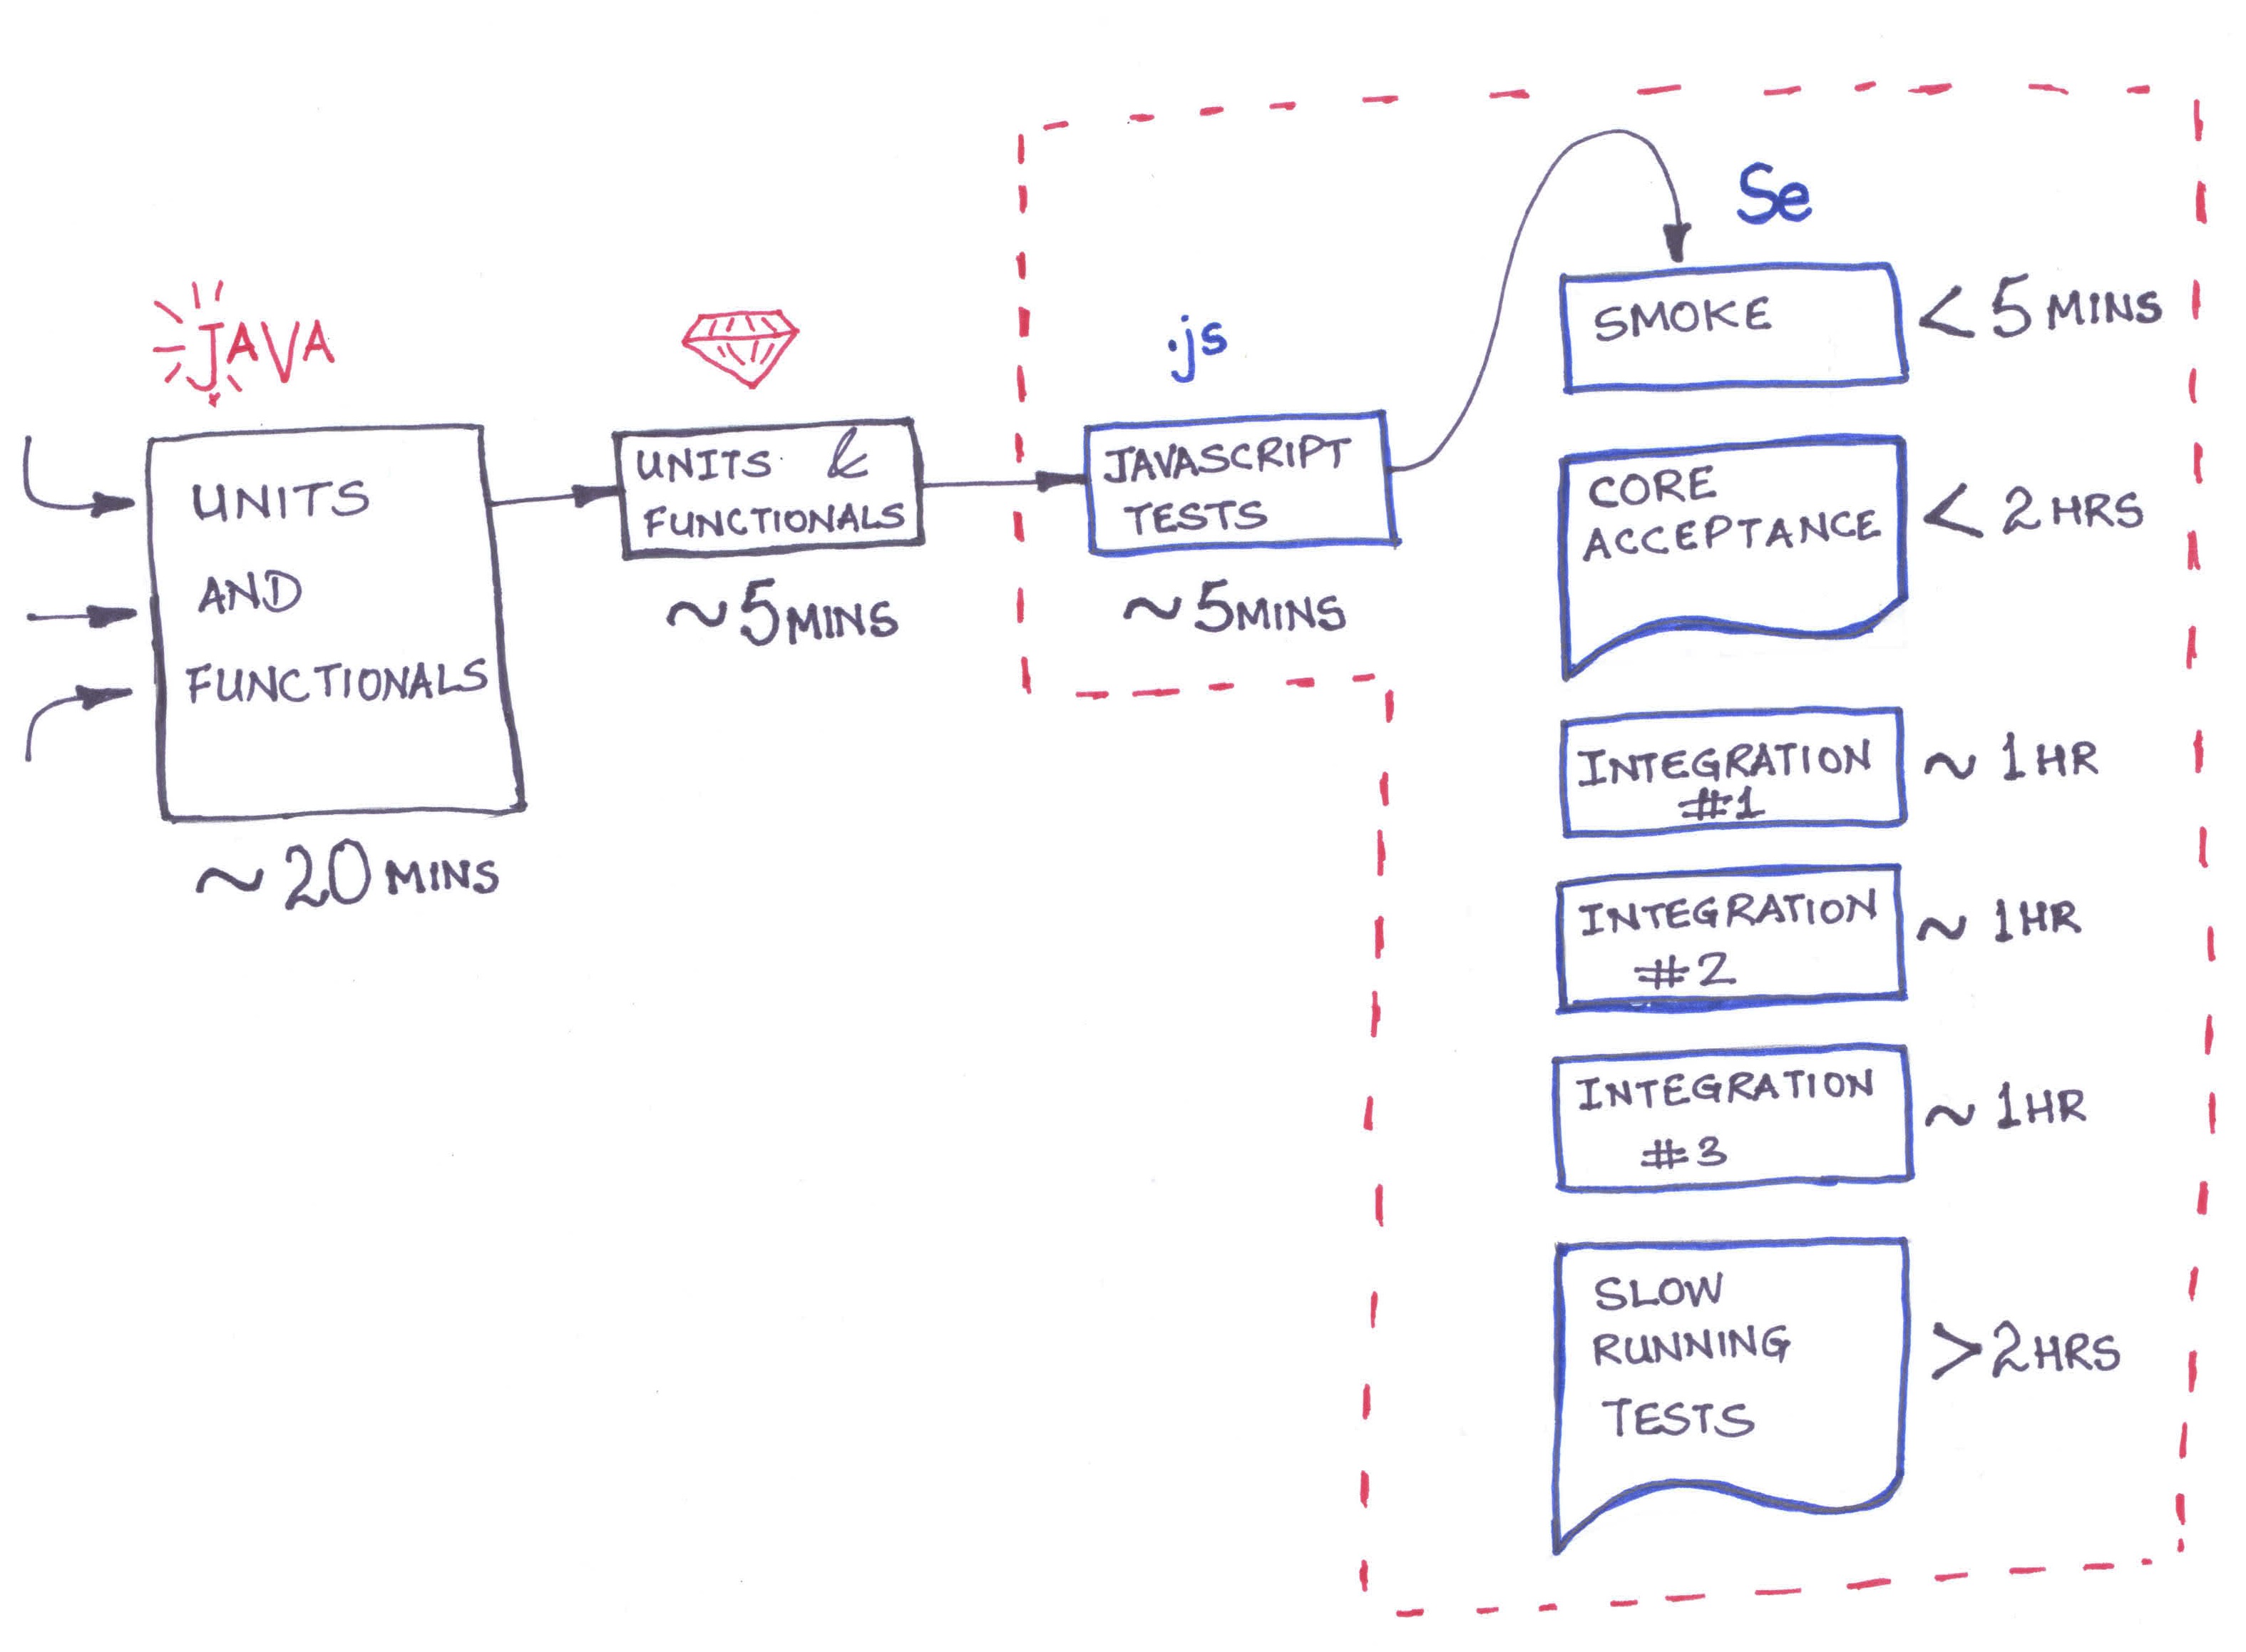 JAVA
UNITS
AND
FUNCTIONALS
~20 MINS
UNITS &
FUNCTIONALS
~5 MINS
.js
JAVASCRIPT
TESTS
~5MINS
Se
SMOKE
< 5 MINS
CORE
ACCEPTANCE
< 2 HRS
INTEGRATION
#1
~ 1 HR
INTEGRATION
#2
~ 1HR
INTEGRATION
#3
~ 1HR
SLOW
RUNNING
TESTS
>2HRS